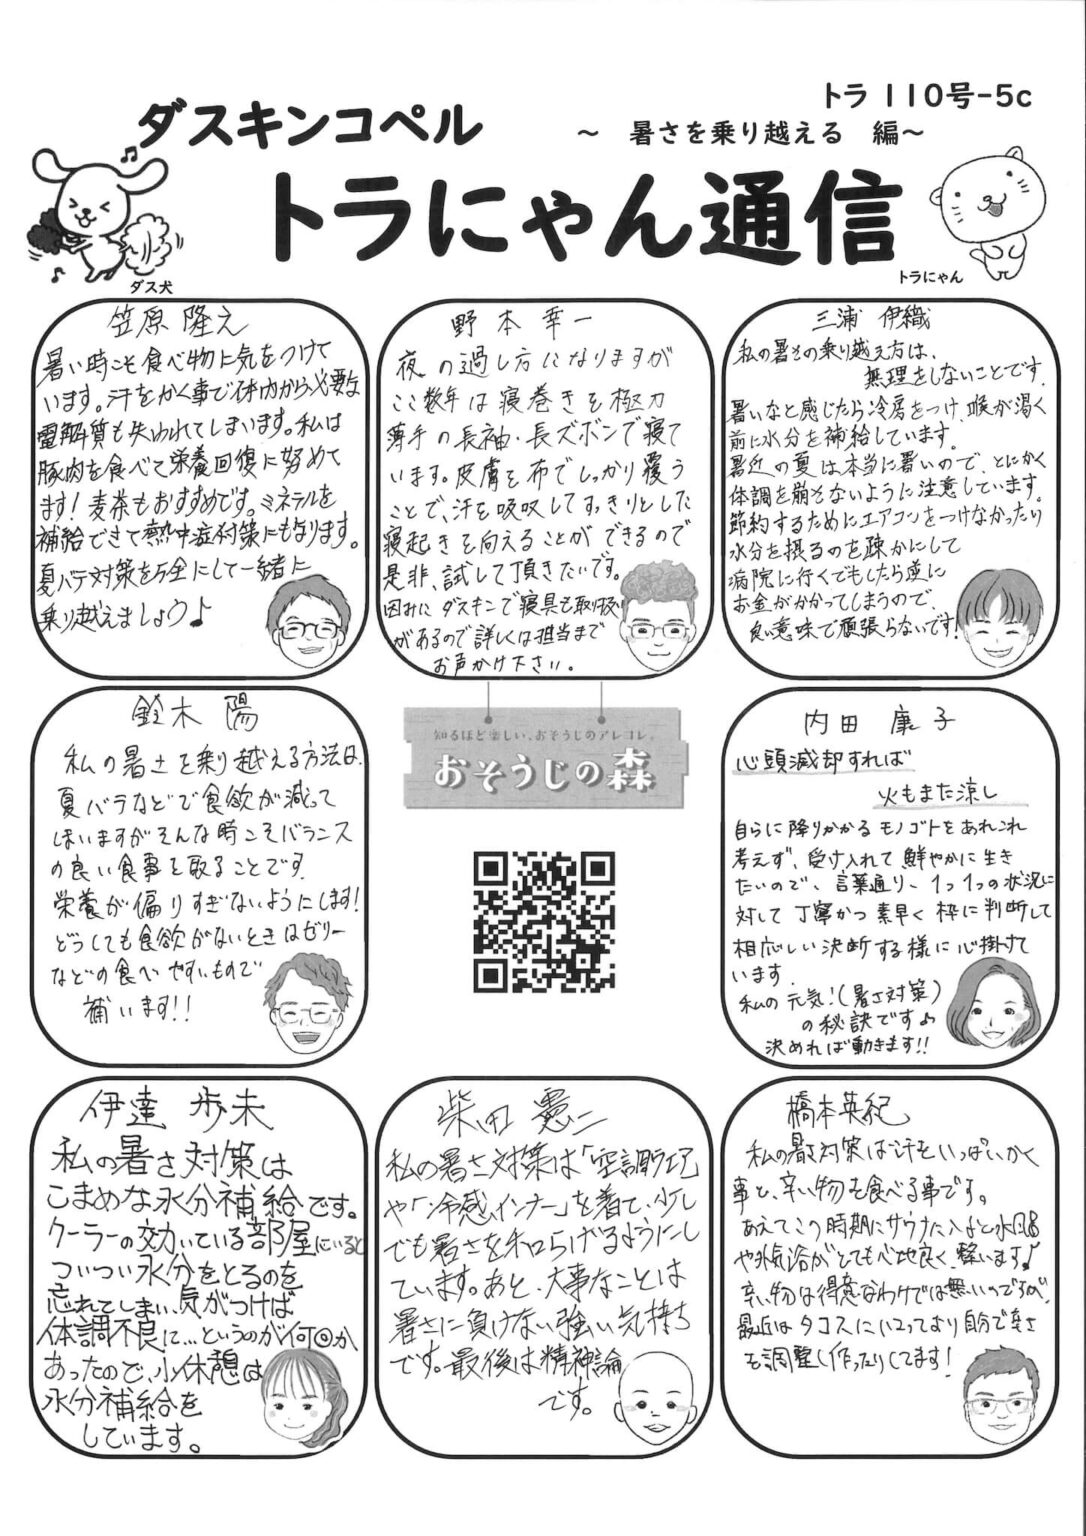 トラ110号-5c
ダスキンコペル
〜 暑さを乗り越える 編〜
トラにゃん通信
ダス犬
トラにゃん
笠原 隆之
暑い時こそ食べ物に気をつけて
います。汗をかく事で体内から必要な
電解質も失われてしまいます。私は
豚肉を食べて栄養回復に努めて
ます!麦茶もおすすめです。ミネラルを
補給できて熱中症対策にもなります。
夏バテ対策を万全にして一緒に
乗り越えましょう♪
野本 幸一
夜の過し方になりますが
ここ数年は寝巻きを極力
薄手の長袖・長ズボンで寝て
います。皮膚を布でしっかり覆う
ことで、汗を吸収してすっきりとした
寝起きを向えることができるので
是非、試して頂きたいです。
因みにダスキンで寝具も取り扱
があるので詳しくは担当まで
お声かけ下さい。
三浦 伊織
私の暑さの乗り越え方は、
無理をしないことです。
暑いなと感じたら冷房をつけ、喉が渇く
前に水分を補給しています。
最近の夏は本当に暑いので、とにかく
体調を崩さないように注意しています。
節約するためにエアコンをつけなかったり
水分を摂るのを疎かにして
病院に行くでもしたら逆に
お金がかかってしまうので、
良い意味で頑張らないです!
鈴木 陽
私の暑さを乗り越える方法は、
夏バテなどで食欲が減って
しまいますがそんな時こそバランス
の良い食事を取ることです。
栄養が偏りすぎないようにします!
どうしても食欲がないときはゼリー
などの食べやすいもので
補います!!
知るほど楽しい、おそうじのアレコレ。
おそうじの森
内田 康子
心頭滅却すれば
火もまた涼し
自らに降りかかるモノゴトをあれこれ
考えず、受け入れて鮮やかに生き
たいので、言葉通り、1つ1つの状況に
対して丁寧かつ素早く枠に判断して
相応しい決断する様に心掛けて
います。
私の元気!(暑さ対策)
の秘訣です♪
決めれば動きます!!
伊達 歩未
私の暑さ対策は
こまめな水分補給です。
クーラーの効いている部屋にいると
ついつい水分をとるのを
忘れてしまい、気がつけば
体調不良に...というのが何回か
あったので、小休憩は
水分補給を
しています。
柴田 憲二
私の暑さ対策は「空調ウエア」
や「冷感インナー」を着て、少し
でも暑さを和らげるようにし
ています。あと、大事なことは
暑さに負けない強い気持ち
です。最後は精神論
です。
橋本英紀
私の暑さ対策は汗をいっぱいかく
事と、辛い物を食べる事です。
あえてこの時期にサウナに入ると水風呂
や外気浴がとても心地良く整います♪
辛い物は得意なわけでは無いのですが、
最近はタコスにハマっており自分で辛さ
を調整し作ったりしてます!